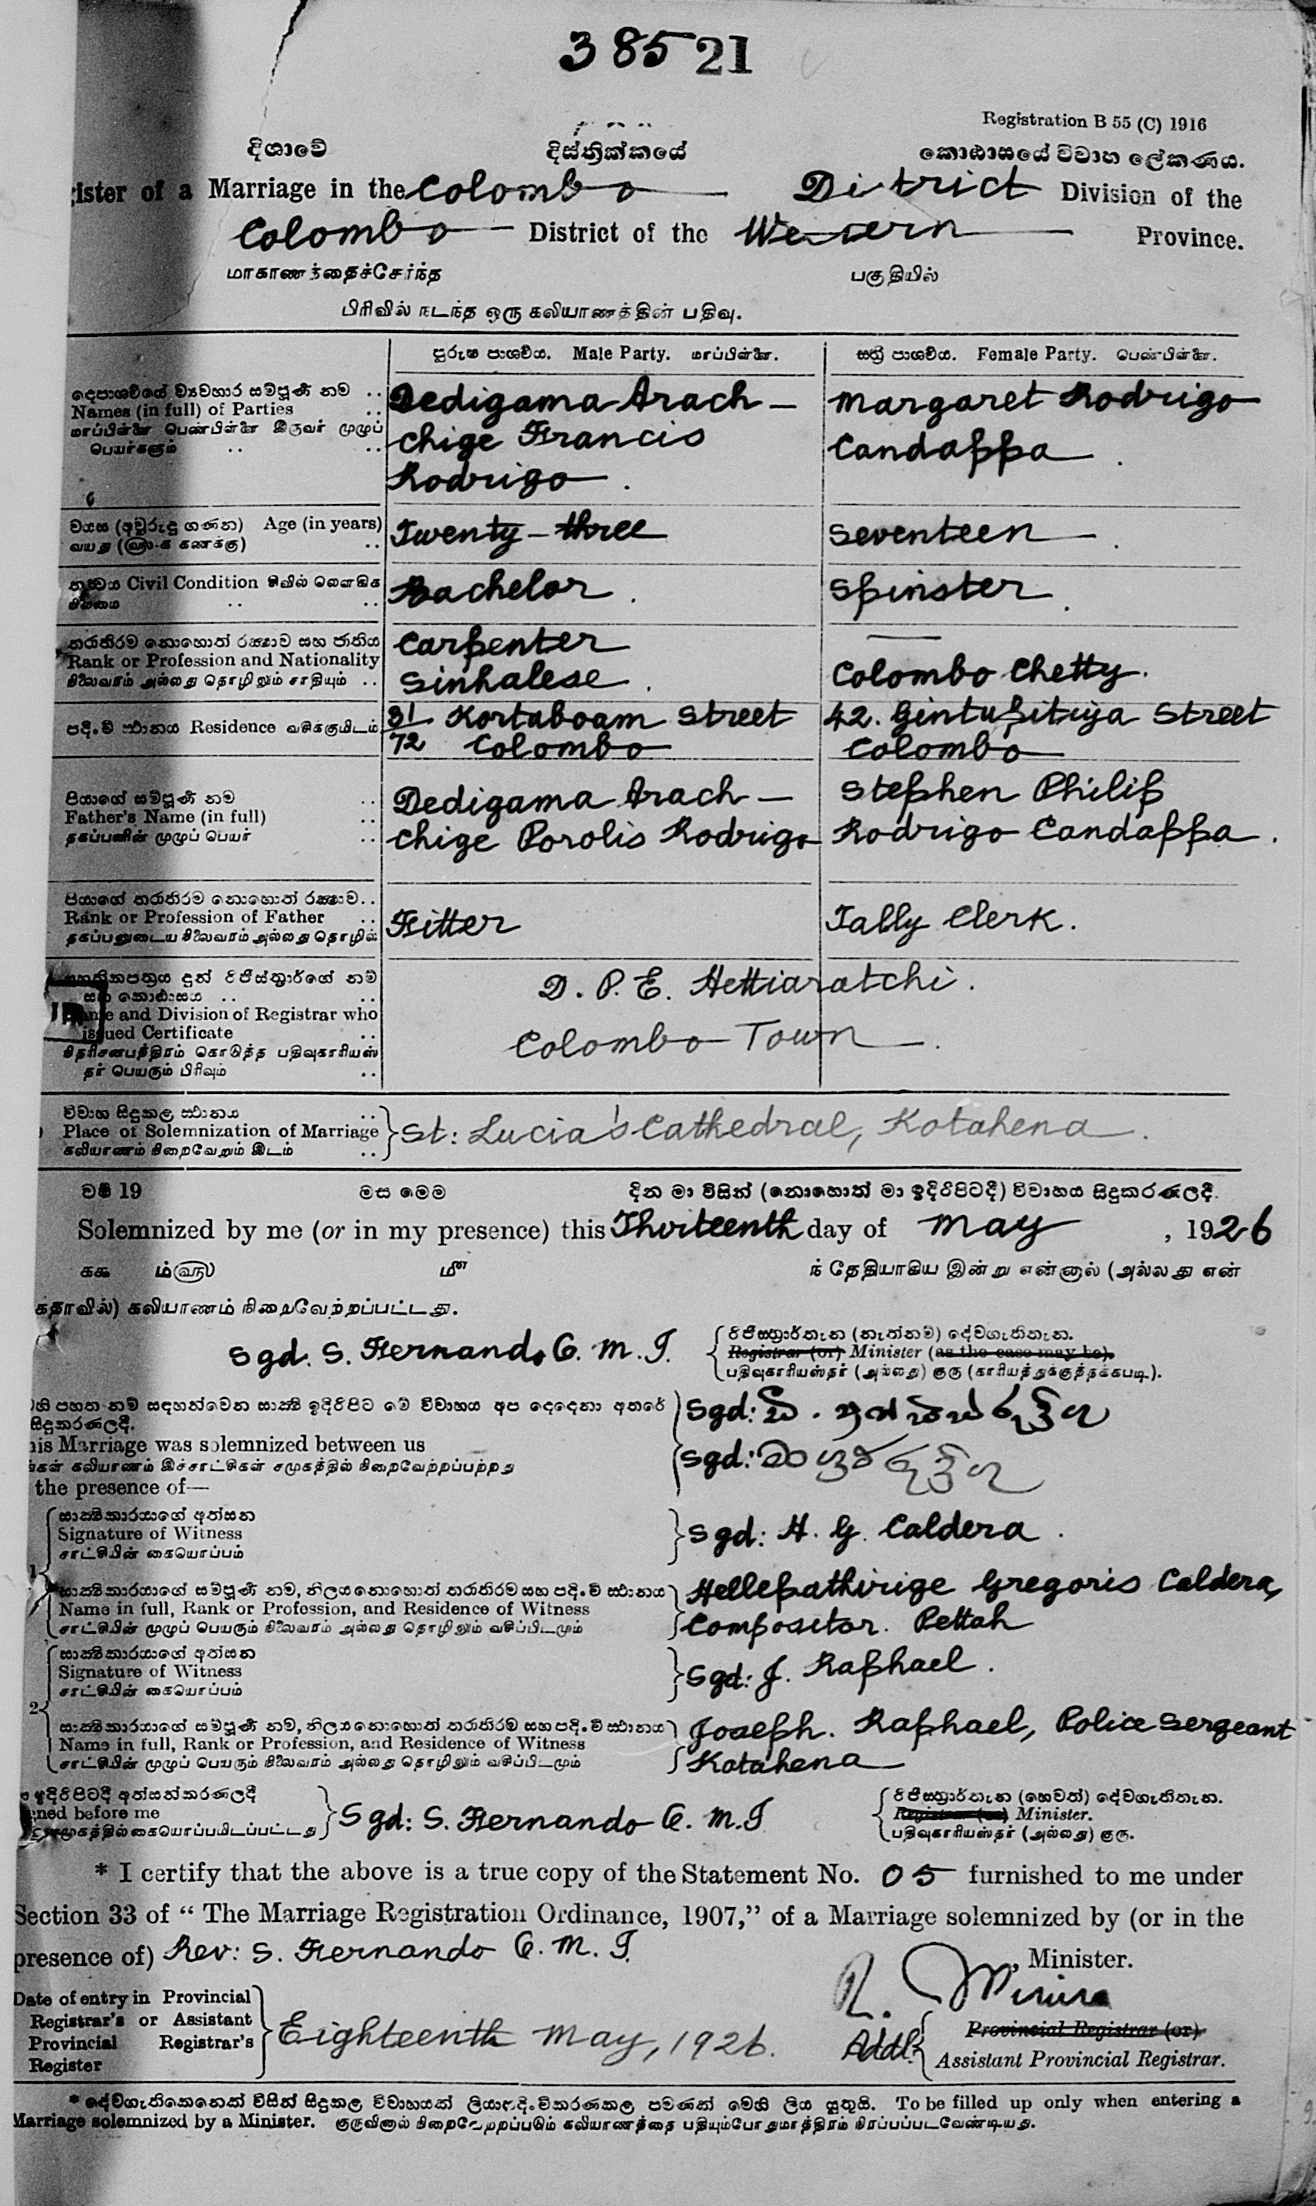 385 21
Registration B 55 (C) 1916
දිශාවේ දිස්ත්‍රික්කයේ කොඨාසයේ විවාහ ලේකණය.
ister of a Marriage in the Colombo District Division of the
Colombo District of the Western Province.
மாகாணத்தைச்சேர்ந்த பகுதியில்
பிரிவில் நடந்த ஒரு கலியாணத்தின் பதிவு.
පුරුෂ පාශවීය. Male Party. மாப்பிள்ளை. ස්ත්‍රී පාශවීය. Female Party. பெண்பிள்ளை.
Names (in full) of Parties
மாப்பிள்ளை பெண்பிள்ளை இருவர் முழுப்
பெயர்களும்
Dedigama Arach-
chige Francis
Rodrigo.
Margaret Rodrigo
Candappa.
වයස (අවුරුදු ගණන) Age (in years)
Twenty-three
Seventeen.
Civil Condition
Bachelor.
Spinster.
Rank or Profession and Nationality
நிலைவரம் அல்லது தொழிலும் சாதியும்
Carpenter
Sinhalese.
Colombo Chetty.
Residence வசிக்குமிடம்
31/72 Kortaboam Street
Colombo
42. Gintupitiya Street
Colombo
පියාගේ සම්පූර්ණ නම
Father's Name (in full)
தகப்பனின் முழுப் பெயர்
Dedigama Arach-
chige Porolis Rodrigo
Stephen Philip
Rodrigo Candappa.
Rank or Profession of Father
தகப்பனுடைய நிலைவரம் அல்லது தொழில்
Fitter
Tally Clerk.
Name and Division of Registrar who
issued Certificate
தர் பெயரும் பிரிவும்
D. P. E. Hettiaratchi.
Colombo Town.
විවාහ සිදුකල ස්ථානය
Place of Solemnization of Marriage
கலியாணம் நிறைவேறும் இடம்
St: Lucia's Cathedral, Kotahena.
වර්ෂ 19 මස මෙම දින මා විසින් (නොහොත් මා ඉදිරිපිටදී) විවාහය සිදුකරණලදී.
Solemnized by me (or in my presence) this Thirteenth day of May, 1926
ந் தேதியாகிய இன்று என்னால் (அல்லது என்
கலியாணம் நிறைவேற்றப்பட்டது.
Sgd. S. Fernando O. M. I.
Registrar (or) Minister (as the case may be).
பதிவுகாரியஸ்தர் (அல்லது) குரு (காரியத்துக்குத்தக்கபடி).
සිදුකරණලදී.
his Marriage was solemnized between us
the presence of—
Sgd:
Sgd:
සාක්ෂිකාරයාගේ අත්සන
Signature of Witness
சாட்சியின் கையொப்பம்
Sgd: H. G. Caldera.
1
Name in full, Rank or Profession, and Residence of Witness
சாட்சியின் முழுப் பெயரும் நிலைவரம் அல்லது தொழிலும் வசிப்பிடமும்
Hellepathirige Gregoris Caldera,
Compositor. Pettah
සාක්ෂිකාරයාගේ අත්සන
Signature of Witness
சாட்சியின் கையொப்பம்
Sgd: J. Raphael.
2
Name in full, Rank or Profession, and Residence of Witness
சாட்சியின் முழுப் பெயரும் நிலைவரம் அல்லது தொழிலும் வசிப்பிடமும்
Joseph. Raphael, Police Sergeant
Kotahena
ඉදිරිපිටදී අත්සන්කරණලදී
ned before me
Sgd: S. Fernando O. M. I
Registrar (or) Minister.
பதிவுகாரியஸ்தர் (அல்லது) குரு.
* I certify that the above is a true copy of the Statement No. 05 furnished to me under
Section 33 of “ The Marriage Registration Ordinance, 1907,” of a Marriage solemnized by (or in the
presence of) Rev: S. Fernando O. M. I. , Minister.
Date of entry in Provincial
Registrar's or Assistant
Provincial Registrar's
Register
Eighteenth May, 1926.
Addl.
Provincial Registrar (or)
Assistant Provincial Registrar.
To be filled up only when entering a
Marriage solemnized by a Minister. குருவினால் நிறைவேற்றப்படும் கலியாணத்தை பதியும்போதுமாத்திரம் நிரப்பப்படவேண்டியது.